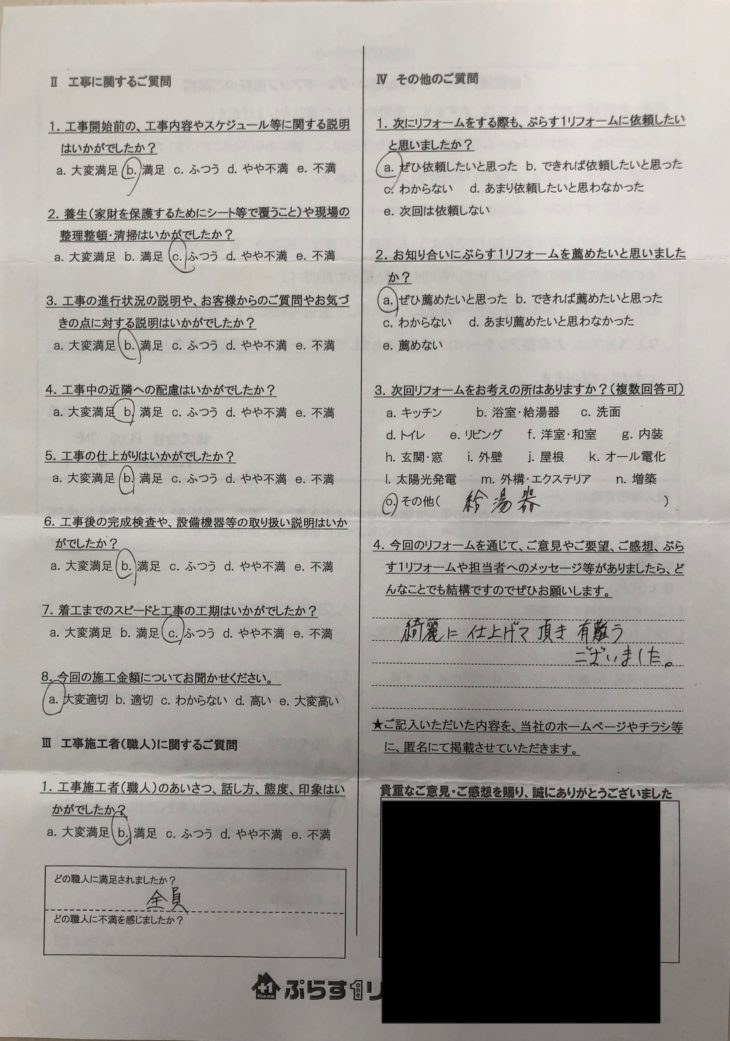 Ⅱ 工事に関するご質問
1. 工事開始前の、工事内容やスケジュール等に関する説明
はいかがでしたか？
a. 大変満足 b. 満足 c. ふつう d. やや不満 e. 不満
2. 養生(家財を保護するためにシート等で覆うこと)や現場の
整理整頓・清掃はいかがでしたか？
a. 大変満足 b. 満足 c. ふつう d. やや不満 e. 不満
3. 工事の進行状況の説明や、お客様からのご質問やお気づ
きの点に対する説明はいかがでしたか？
a. 大変満足 b. 満足 c. ふつう d. やや不満 e. 不満
4. 工事中の近隣への配慮はいかがでしたか？
a. 大変満足 b. 満足 c. ふつう d. やや不満 e. 不満
5. 工事の仕上がりはいかがでしたか？
a. 大変満足 b. 満足 c. ふつう d. やや不満 e. 不満
6. 工事後の完成検査や、設備機器等の取り扱い説明はいか
がでしたか？
a. 大変満足 b. 満足 c. ふつう d. やや不満 e. 不満
7. 着工までのスピードと工事の工期はいかがでしたか？
a. 大変満足 b. 満足 c. ふつう d. やや不満 e. 不満
8. 今回の施工金額についてお聞かせください。
a. 大変適切 b. 適切 c. わからない d. 高い e. 大変高い
Ⅲ 工事施工者(職人)に関するご質問
1. 工事施工者(職人)のあいさつ、話し方、態度、印象はい
かがでしたか？
a. 大変満足 b. 満足 c. ふつう d. やや不満 e. 不満
どの職人に満足されましたか？
全員
どの職人に不満を感じましたか？
Ⅳ その他のご質問
1. 次にリフォームをする際も、ぷらす1リフォームに依頼したい
と思いましたか？
a. ぜひ依頼したいと思った b. できれば依頼したいと思った
c. わからない d. あまり依頼したいと思わなかった
e. 次回は依頼しない
2. お知り合いにぷらす1リフォームを薦めたいと思いました
か？
a. ぜひ薦めたいと思った b. できれば薦めたいと思った
c. わからない d. あまり薦めたいと思わなかった
e. 薦めない
3. 次回リフォームをお考えの所はありますか？(複数回答可)
a. キッチン b. 浴室・給湯器 c. 洗面
d. トイレ e. リビング f. 洋室・和室 g. 内装
h. 玄関・窓 i. 外壁 j. 屋根 k. オール電化
l. 太陽光発電 m. 外構・エクステリア n. 増築
o. その他( 給湯器 )
4. 今回のリフォームを通じて、ご意見やご要望、ご感想、ぷら
す1リフォームや担当者へのメッセージ等がありましたら、ど
んなことでも結構ですのでぜひお願いします。
綺麗に仕上げて頂き有難う
ございました。
★ご記入いただいた内容を、当社のホームページやチラシ等
に、匿名にて掲載させていただきます。
貴重なご意見・ご感想を賜り、誠にありがとうございました
+1 ぷらす1リ